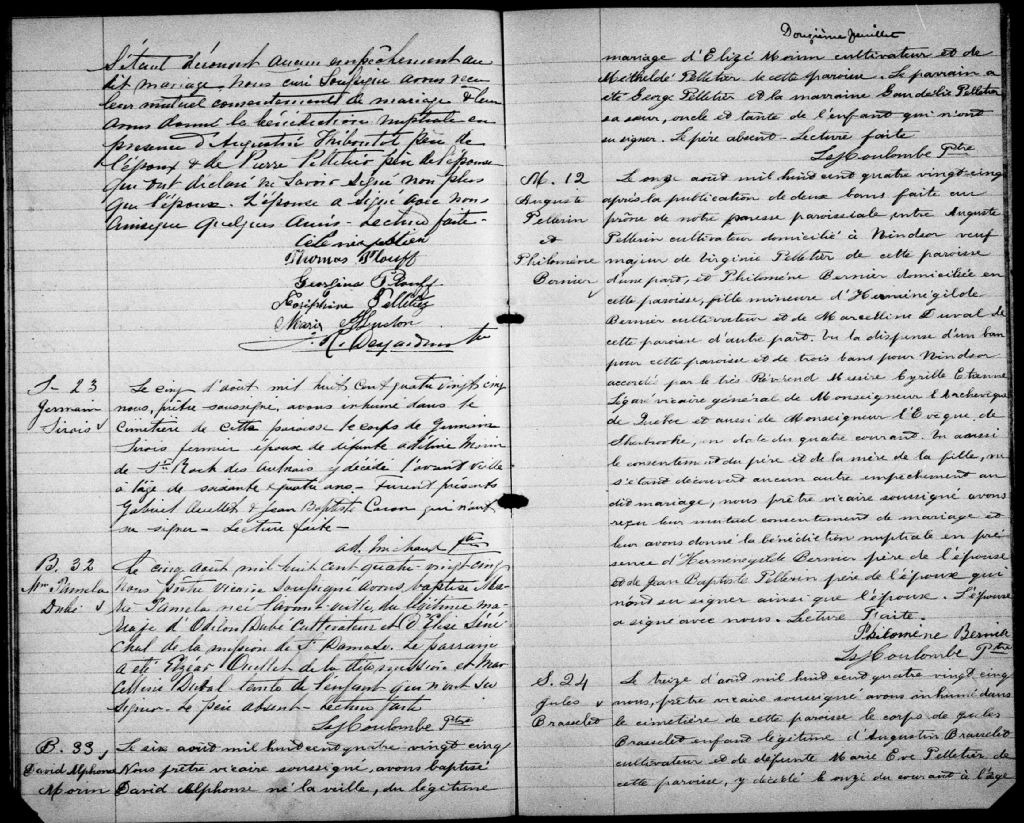 S'étant découvert aucun empêchement au
dit mariage nous curé soussigné avons reçu
leur mutuel consentement de mariage & leur
avons donné la bénédiction nuptiale en
presence d'Augustin Thiboutot père de
l'époux & de Pierre Pelletier père de l'épouse
qui ont déclaré ne savoir signer non plus
que l'époux. L'épouse a signé avec nous
ainsique quelques amis. Lecture faite.
Thomas Plouff
Georgina Plouff
Joséphine Pelletier
Marie
Desjardins
S- 23
Germain
Sirois
Le cinq d'août mil huit cent quatre vingt cinq
nous, prêtre soussigné, avons inhumé dans le
cimetière de cette paroisse le corps de Germain
Sirois fermier époux de défunte Adéline Morin
de St Roch des Aulnais y décédé l'avant veille
à l'âge de soixante & quatre ans - Furent présents
Gabriel Ouellet & Jean Baptiste Caron qui n'ont
su signer - Lecture faite -
Ad. Michaud Ptre
B. 32
Mie Pamela
Dubé
Le cinq août mil huit cent quatre-vingt cinq
Nous prêtre vicaire soussigné avons baptisé Ma-
rie Pamela née l'avant-veille, du légitime ma-
riage d'Odilon Dubé cultivateur et d'Elise Séné-
chal de la mission de St Damase. Le parrain
a été Elzéar Ouellet de la dite mission et Mar-
celline Dubal tante de l'enfant qui n'ont su
signer. Le père absent - Lecture faite
Ls J Coulombe Ptre
B. 33,
David Alphonse
Morin
Le six août mil huit cent quatre vingt cinq
Nous prêtre vicaire soussigné, avons baptisé
David Alphonse né la veille, du légitime
Douzième feuillet
mariage d'Elizé Morin cultivateur et de
Mathilde Pelletier de cette paroisse. Le parrain a
été George Pelletier et la marraine Pelletier
sa sœur, oncle et tante de l'enfant qui n'ont
su signer. Le père absent - Lecture faite
Ls J Coulombe Ptre
M. 12
Auguste
Pellerin
et
Philomène
Bernier
Le onze août mil huit cent quatre vingt cinq
après la publication de deux bans faite au
prône de notre messe paroissiale entre Auguste
Pellerin cultivateur domicilié à Windsor veuf
majeur de Virginie Pelletier de cette paroisse
d'une part, et Philomène Bernier domiciliée en
cette paroisse, fille mineure d'Herménégilde
Bernier cultivateur et de Marcelline Duval de
cette paroisse d'autre part. Vu la dispense d'un ban
pour cette paroisse et de trois bans pour Windsor
accordé par le très Révérend Messire Cyrille Etienne
Légaré vicaire général de Monseigneur l'Archevêque
de Québec et aussi de Monseigneur l'Evêque de
Sherbrooke, en date du quatre courant. Vu aussi
le consentement du père et de la mère de la fille, ne
s'étant découvert aucun autre empêchement au
dit mariage, nous prêtre vicaire soussigné avons
reçu leur mutuel consentement de mariage et
leur avons donné la bénédiction nuptiale en pré-
sence d'Hermenégilde Bernier père de l'épouse
et de Jean Baptiste Pellerin père de l'époux qui
n'ont su signer ainsi que l'époux. L'épouse
a signé avec nous. Lecture Faite.
Philomène Bernier
Ls J Coulombe Ptre
S. 24
Jules
Brasselet
Le treize d'août mil huit cent quatre vingt cinq
nous, prêtre vicaire soussigné avons inhumé dans
le cimetière de cette paroisse le corps de Jules
Brasselet enfant légitime d'Augustin Brasselet
cultivateur et de défunte Marie Eve Pelletier de
cette paroisse, y décédé le onze du courant à l'âge